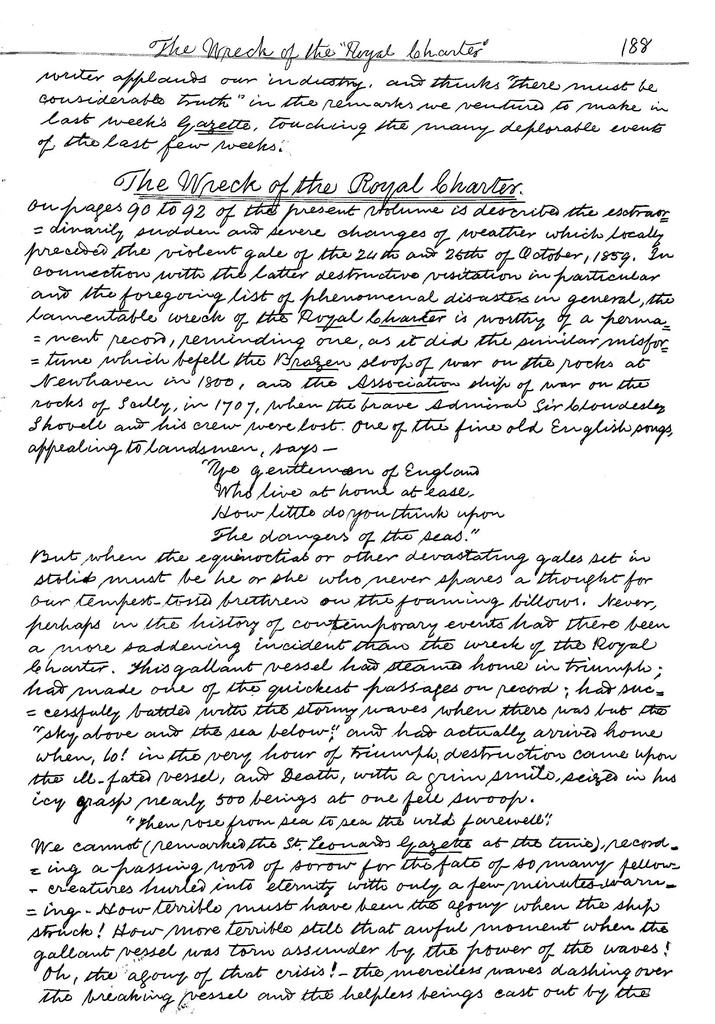 The Wreck of the "Royal Charter" 188
writer applauds our industry, and thinks "there must be
considerable truth" in the remarks we ventured to make in
last week's Gazette, touching the many deplorable events
of the last few weeks."
The Wreck of the Royal Charter.
On pages 90 to 92 of the present volume is described the extraor=
=dinarily sudden and severe changes of weather which locally
preceded the violent gale of the 24th and 25th of October, 1859. In
connection with the latter destructive visitation in particular
and the foregoing list of phenomenal disasters in general, the
lamentable wreck of the Royal Charter is worthy of a perma=
=nent record, reminding one, as it did the similar misfor=
=tune which befell the Brazen sloop of war on the rocks at
Newhaven in 1800, and the Association ship of war on the
rocks of Scilly, in 1707, when the brave Admiral Sir Cloudesley
Shovell and his crew were lost. One of the fine old English songs,
appealing to landsmen, says —
"Ye gentlemen of England
Who live at home at ease,
How little do you think upon
The dangers of the seas."
But when the equinoctial or other devastating gales set in
stolid must be he or she who never spares a thought for
our tempest-tossed brethren on the foaming billows. Never,
perhaps in the history of contemporary events had there been
a more saddening incident than the wreck of the Royal
Charter. This gallant vessel had steamed home in triumph;
had made one of the quickest passages on record; had suc=
=cessfully battled with the stormy waves when there was but the
"sky above and the sea below;" and had actually arrived home
when, lo! in the very hour of triumph, destruction came upon
the ill-fated vessel, and Death, with a grim smile, seized in his
icy grasp nearly 500 beings at one fell swoop.
"Then rose from sea to sea the wild farewell".
We cannot (remarked the St. Leonards Gazette at the time), record=
=ing a passing word of sorrow for the fate of so many fellow-
-creatures hurled into eternity with only a few minutes warn=
=ing. How terrible must have been the agony when the ship
struck! How more terrible still that awful moment when the
gallant vessel was torn assunder by the power of the waves!
Oh, the agony of that crisis! - the merciless waves dashing over
the breaking vessel and the helpless beings cast out by the